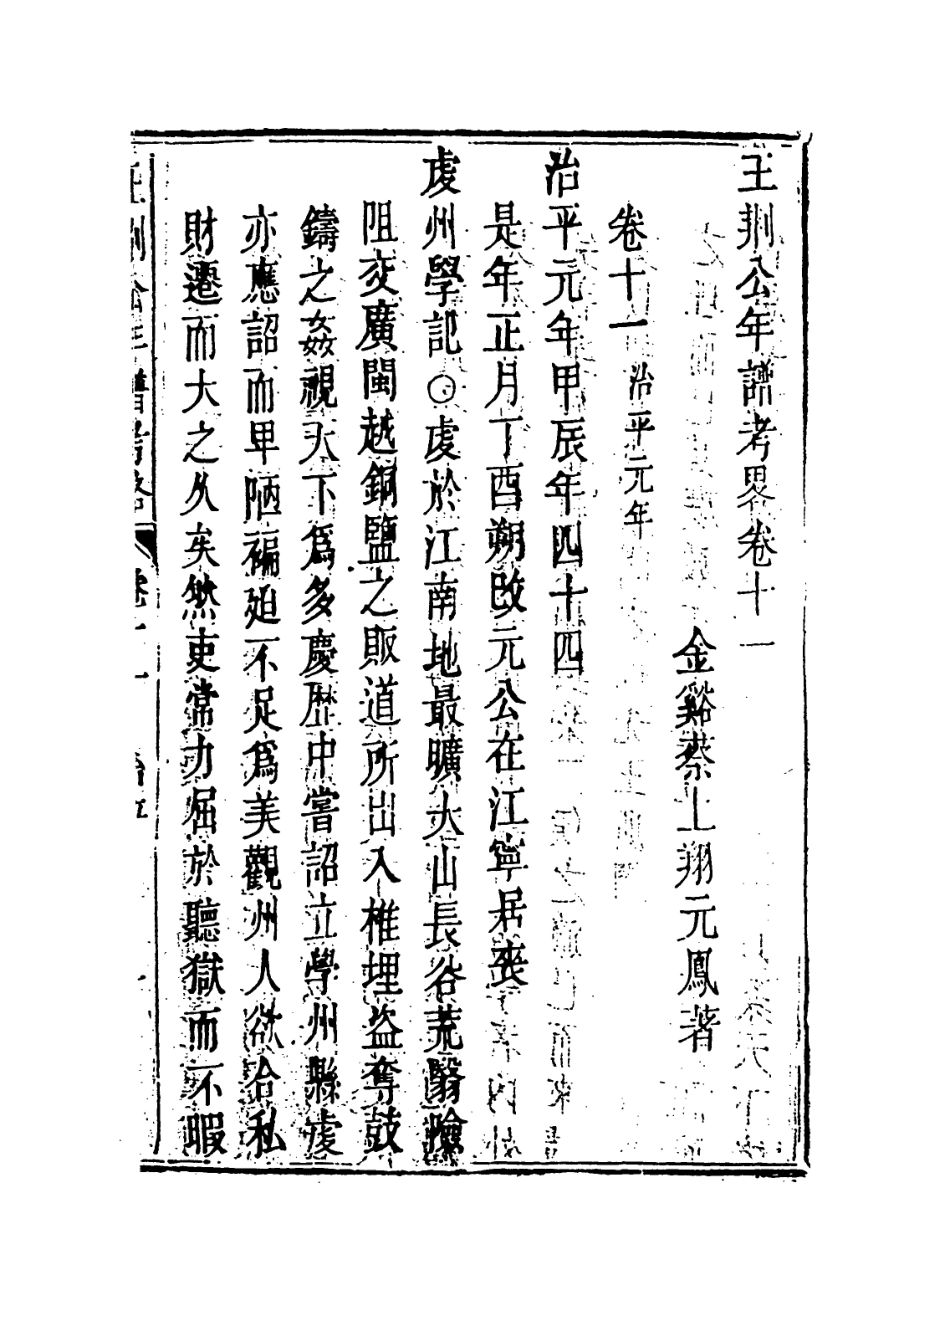 王荆公年譜考畧卷十一
金谿蔡上翔元鳳著
卷十一 治平元年
治平元年甲辰年四十四
是年正月丁酉朔改元公在江寧居喪
虔州學記〇虔於江南地最曠大山長谷荒翳險
阻交廣閩越銅鹽之販道所出入椎埋盜奪鼓
鑄之姦視天下爲多慶歷中嘗詔立學州縣虔
亦應詔而卑陋褊廹不足爲美觀州人欲合私
財遷而大之久矣然吏常力屈於聽獄而不暇
王荆公年譜考略 卷十一